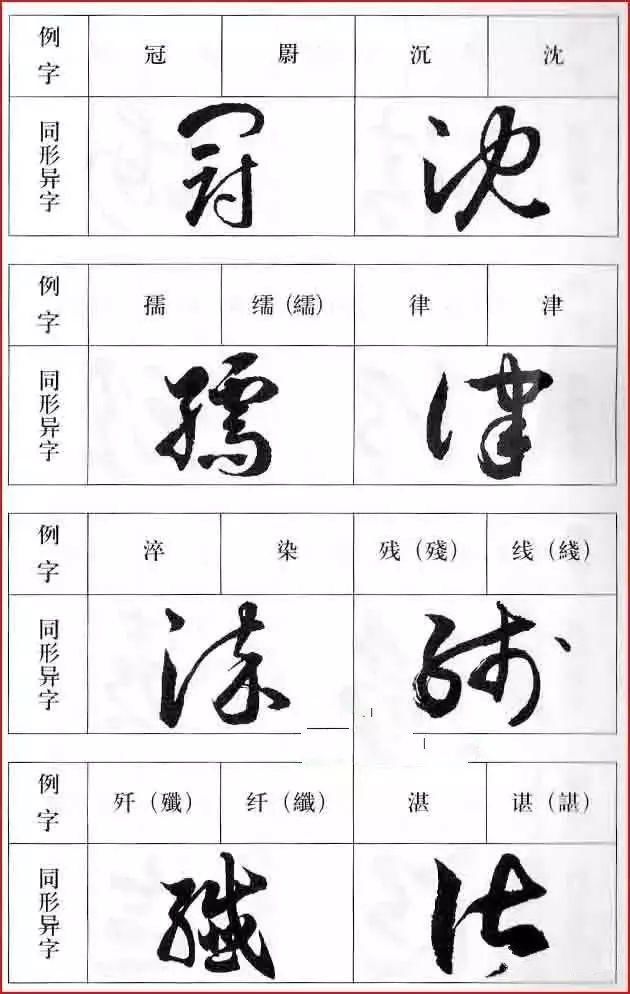 例字 冠 罻 沉 沈
同形异字
例字 孺 缛（繻） 律 津
同形异字
例字 淬 染 残（殘） 线（綫）
同形异字
例字 歼（殲） 纤（纖） 湛 谌（諶）
同形异字